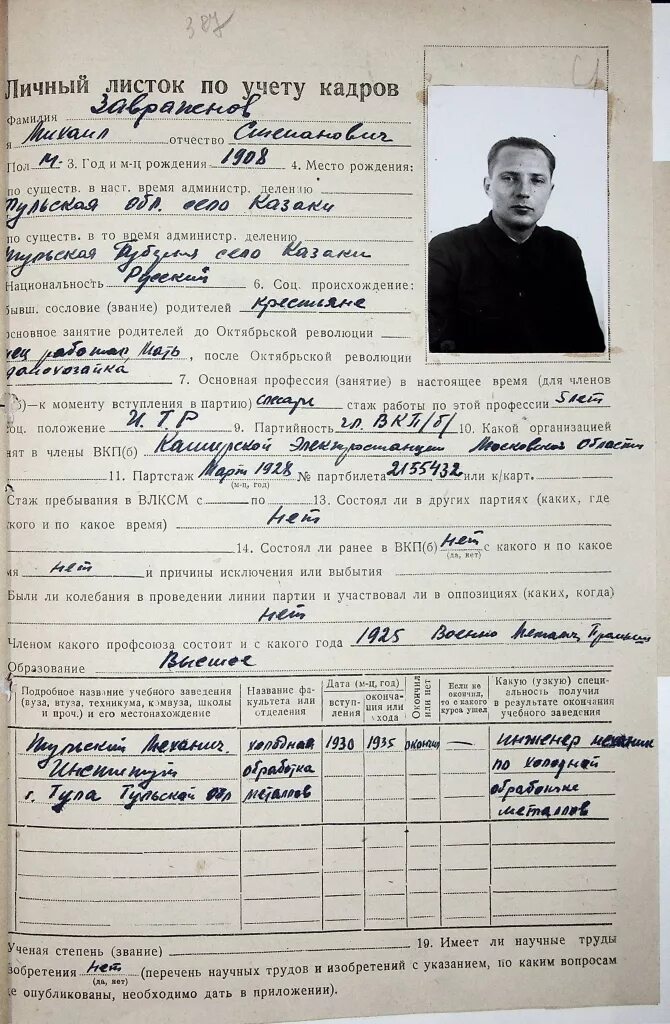 387
Личный листок по учету кадров
Фамилия Завраженов
я Михаил отчество Степанович
Пол М. 3. Год и м-ц рождения 1908 4. Место рождения:
по существ. в наст. время администр. делению
Тульская обл. село Казаки
по существ. в то время администр. делению
Тульская Губерния село Казаки
Национальность Русский 6. Соц. происхождение:
бывш. сословие (звание) родителей крестьяне
основное занятие родителей до Октябрьской революции
отец работал, Мать, после Октябрьской революции
домохозайка
7. Основная профессия (занятие) в настоящее время (для членов
б)—к моменту вступления в партию) слесарь стаж работы по этой профессии 5 лет
соц. положение И.Т.Р 9. Партийность чл. ВКП/б/ 10. Какой организацией
нят в члены ВКП(б) Каширской Электростанции Московской Области
11. Партстаж Март 1928 № партбилета 2155432 или к/карт.
(м-ц, год)
Стаж пребывания в ВЛКСМ с по 13. Состоял ли в других партиях (каких, где
кого и по какое время) нет
14. Состоял ли ранее в ВКП(б) нет с какого и по какое
(да, нет)
мя нет и причины исключения или выбытия
Были ли колебания в проведении линии партии и участвовал ли в оппозициях (каких, когда)
нет
Членом какого профсоюза состоит и с какого года 1925 Военно Металич
Образование Высшее
Подробное название учебного заведения (вуза, втуза, техникума, комвуза, школы и проч.) и его местонахождение
Название факультета или отделения
Дата (м-ц, год)
вступления
окончания или ухода
Окончил или нет
Если не окончил, то с какого курса ушел
Какую (узкую) специальность получил в результате окончания учебного заведения
Тульский Механич. холодная 1930 1935 окончил — инженер механик
Институт обработка по холодной
г. Тула Тульской обл металлов обработке
металлов
Ученая степень (звание) 19. Имеет ли научные труды
изобретения нет (перечень научных трудов и изобретений с указанием, по каким вопросам
(да, нет)
е опубликованы, необходимо дать в приложении).